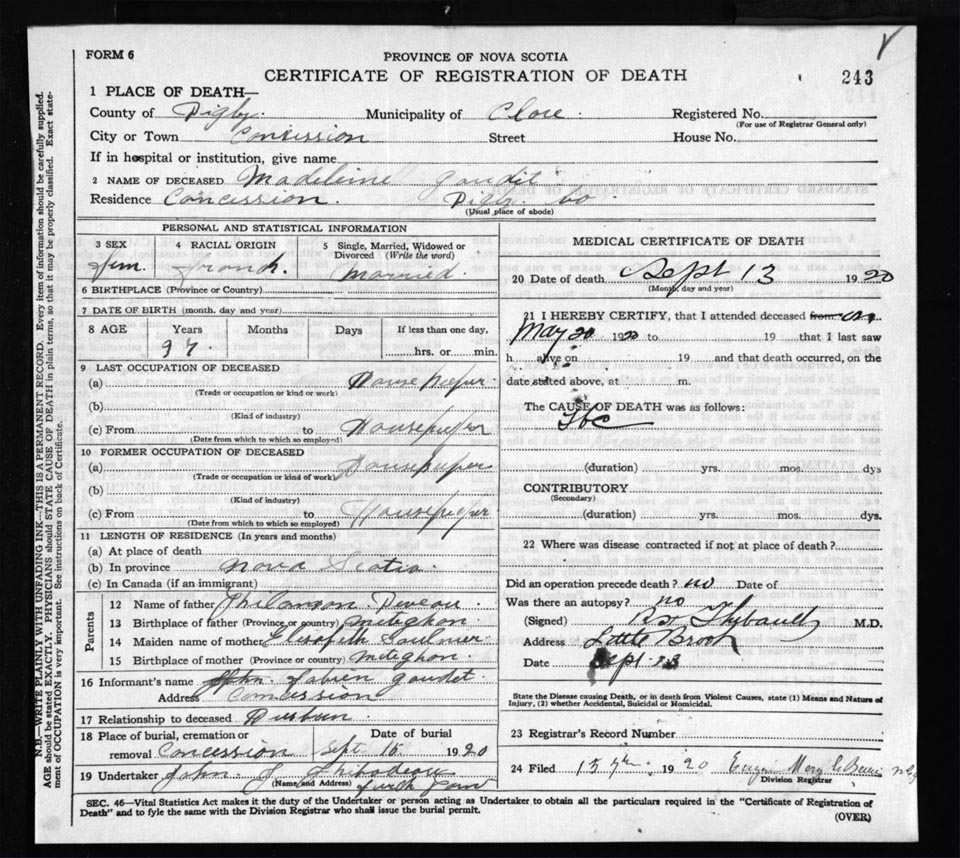 FORM 6
PROVINCE OF NOVA SCOTIA
CERTIFICATE OF REGISTRATION OF DEATH
243
1 PLACE OF DEATH—
County of Digby. Municipality of Clare. Registered No.
(For use of Registrar General only)
City or Town Concession Street House No.
If in hospital or institution, give name
2 NAME OF DECEASED Madeleine Gaudit
Residence Concession. Digby Co.
(Usual place of abode)
PERSONAL AND STATISTICAL INFORMATION
3 SEX 4 RACIAL ORIGIN 5 Single, Married, Widowed or
Divorced (Write the word)
Fem. French. Married.
6 BIRTHPLACE (Province or Country)
7 DATE OF BIRTH (month, day and year)
8 AGE Years Months Days If less than one day,
hrs. or min.
9 LAST OCCUPATION OF DECEASED
(a)
(Trade or occupation or kind or work)
(b)
(Kind of industry)
(c) From to
(Date from which to which so employed)
10 FORMER OCCUPATION OF DECEASED
(a)
(Trade or occupation or kind of work)
(b)
(Kind of industry)
(c) From to
(Date from which to which so employed)
11 LENGTH OF RESIDENCE (In years and months)
(a) At place of death
(b) In province Nova Scotia
(c) In Canada (if an immigrant)
Parents
12 Name of father Deveau
13 Birthplace of father (Province or country) Meteghon
14 Maiden name of mother Saulnier
15 Birthplace of mother (Province or country) Meteghon
16 Informant's name Gaudet
Address Concession
17 Relationship to deceased
18 Place of burial, cremation or Date of burial
removal Concession Sept 15 1920
19 Undertaker John J
(Name and Address)
MEDICAL CERTIFICATE OF DEATH
20 Date of death Sept 13 1920
(Month, day and year)
21 I HEREBY CERTIFY, that I attended deceased from on
May 20 1920 to 19 that I last saw
h alive on 19 and that death occurred, on the
date stated above, at m.
The CAUSE OF DEATH was as follows:
Tbc
(duration) yrs. mos. dys
CONTRIBUTORY
(Secondary)
(duration) yrs. mos. dys.
22 Where was disease contracted if not at place of death?
Did an operation precede death? no Date of
Was there an autopsy? no
(Signed) Thibault M.D.
Address Little Brook
Date Sept. 13
State the Disease causing Death, or in death from Violent Causes, state (1) Means and Nature of
Injury, (2) whether Accidental, Suicidal or Homicidal.
23 Registrar's Record Number
24 Filed 15 1920
Division Registrar
SEC. 46—Vital Statistics Act makes it the duty of the Undertaker or person acting as Undertaker to obtain all the particulars required in the "Certificate of Registration of
Death" and to fyle the same with the Division Registrar who shall issue the burial permit.
(OVER)
N.B.—WRITE PLAINLY WITH UNFADING INK—THIS IS A PERMANENT RECORD. Every item of information should be carefully supplied.
AGE should be stated EXACTLY. PHYSICIANS should STATE CAUSE OF DEATH in plain terms, so that it may be properly classified. Exact state-
ment of OCCUPATION is very important. See instructions on back of Certificate.